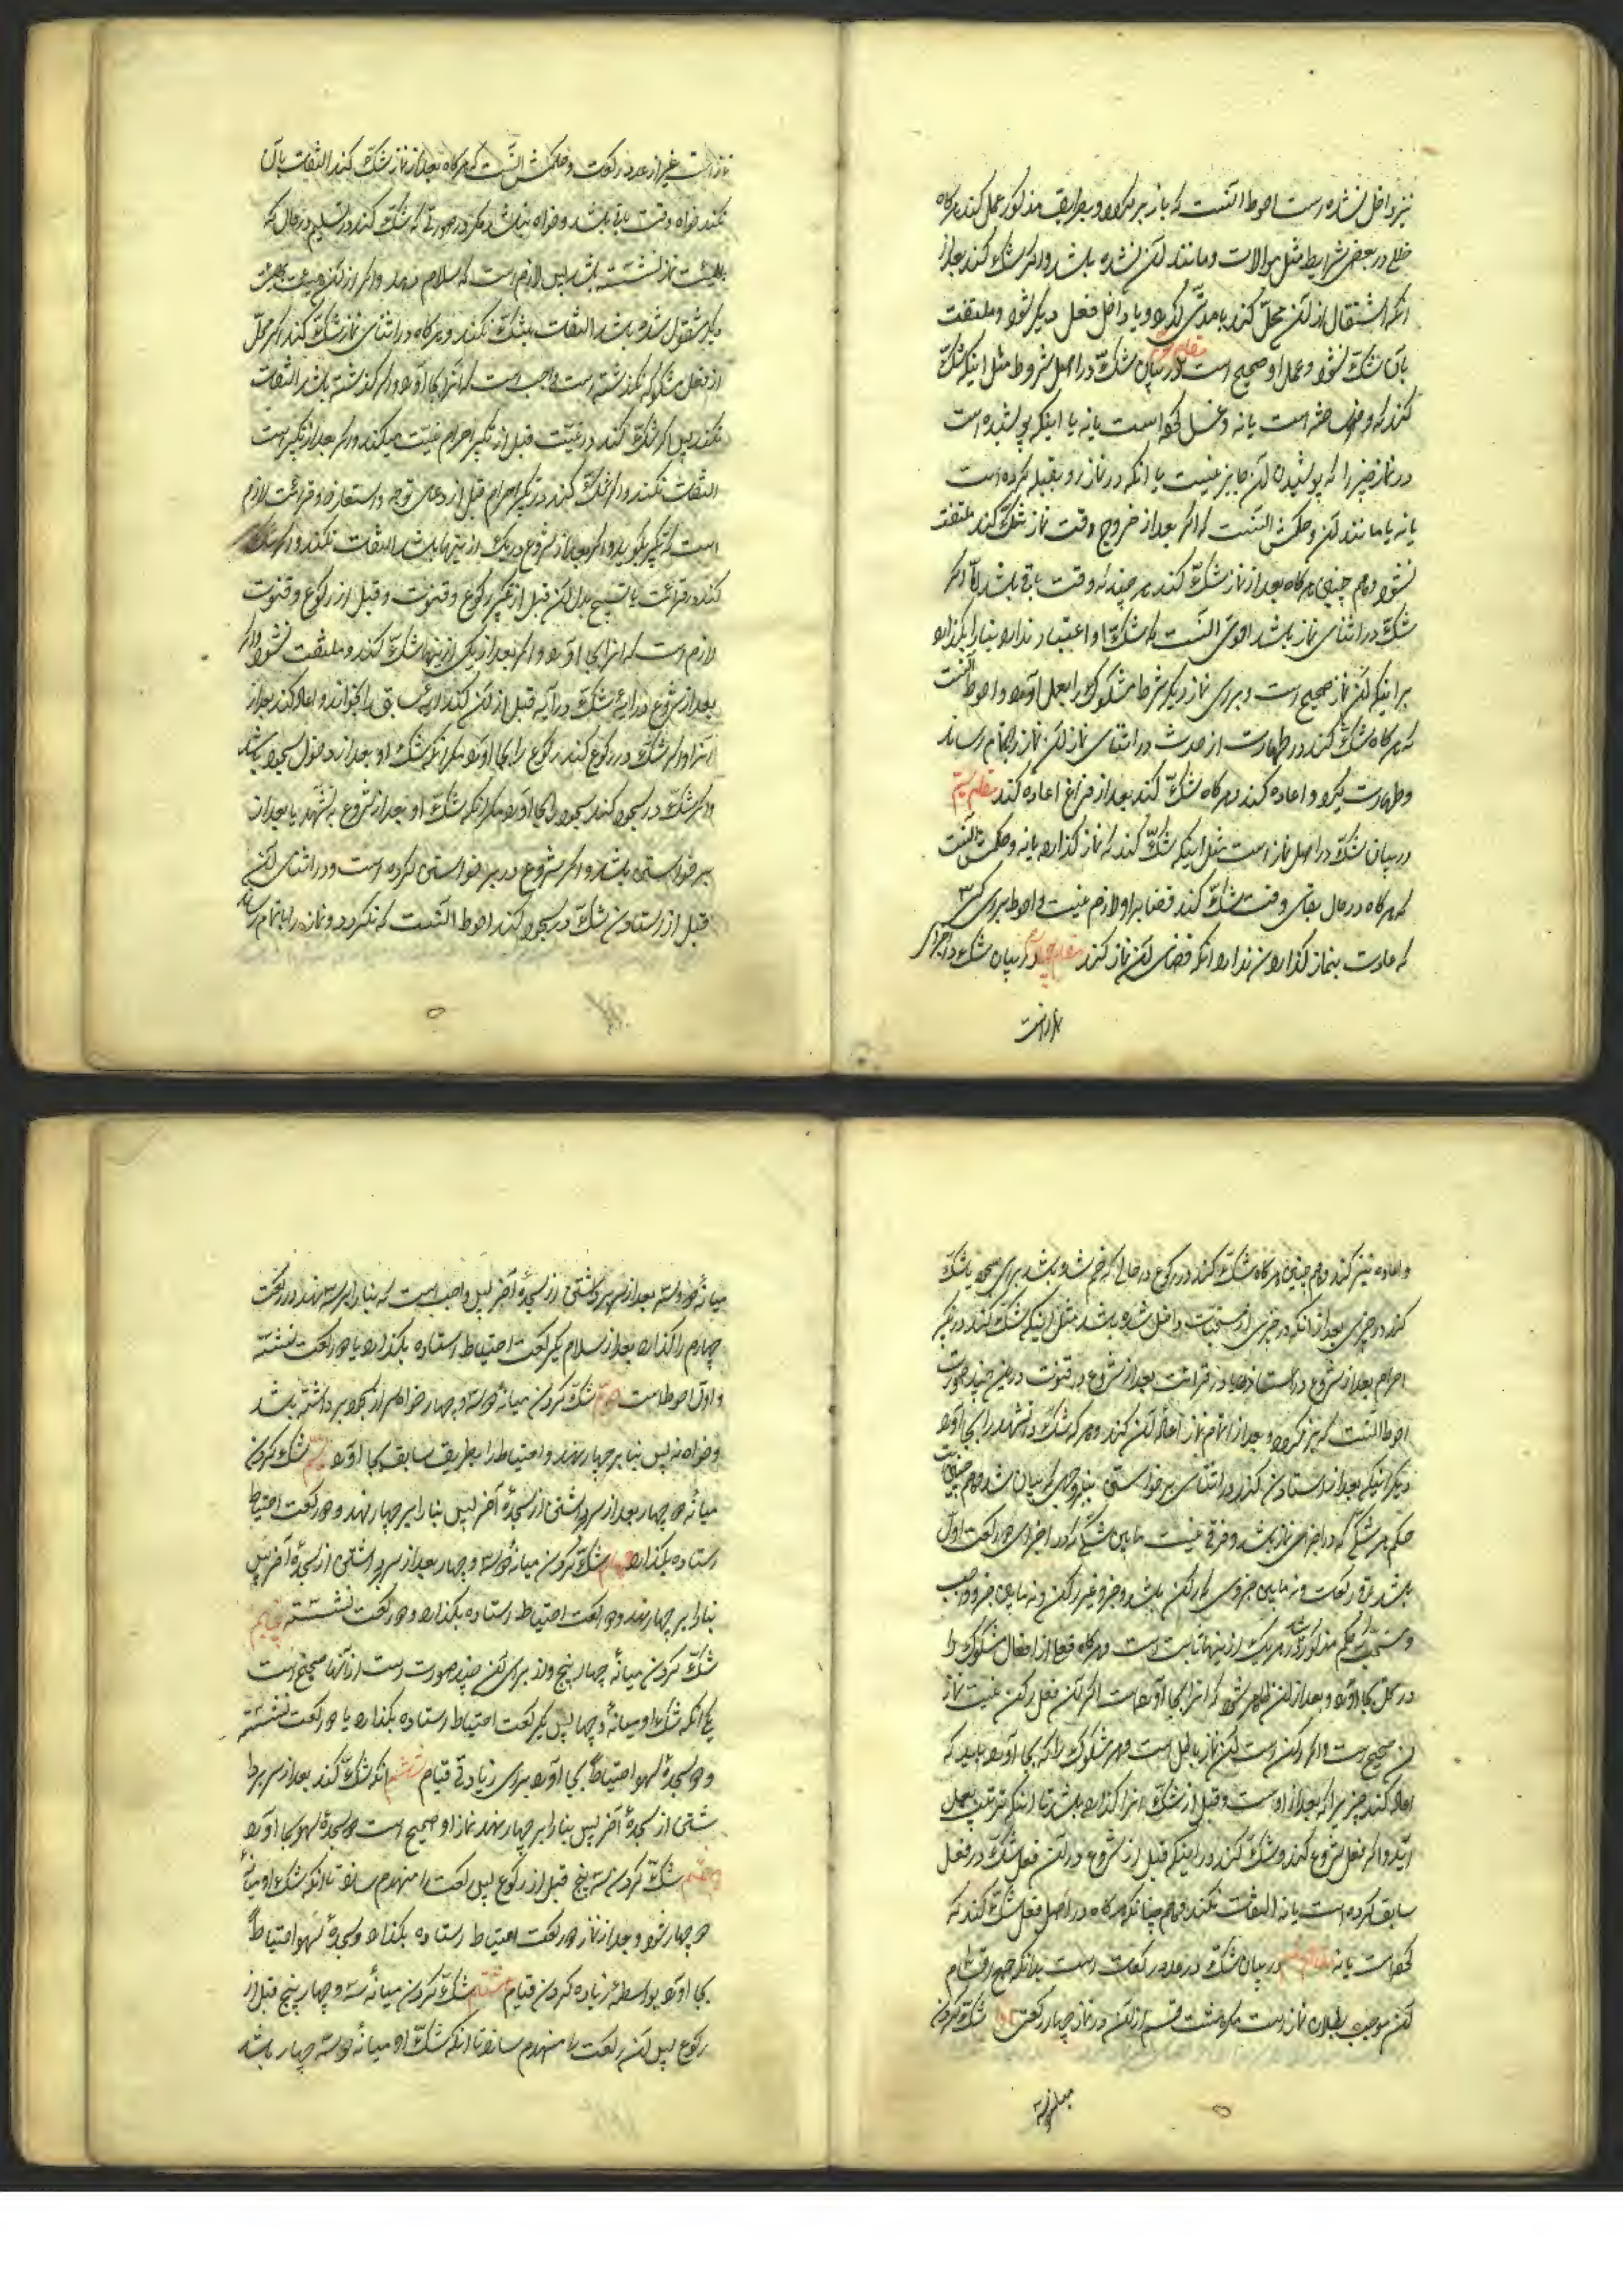 نیز داخل نشده است احوط آنست که باز بر میگردد و بطریق مذکور عمل کند هرگاه
خللی در بعضی شرایط مثل موالات و مانند آن نشده باشد و اگر شک کند بعد از
آنکه انتقال از آن محل کند یا مدتی گذرد و یا داخل فعل دیگر شود و ملتفت
بآن شک نشود و عمل او صحیح است مقام دوم در بیان شک در اصل شروط مثل اینکه شک
کند که وضو ساخته است یا نه و غسل کرده است یا نه یا اینکه پوشیده است
در نماز چیزی را که پوشیدن آن جایز نیست یا آنکه در نماز رو بقبله کرده است
یا نه یا مانند آن و حکمش آنست که اگر بعد از خروج وقت نماز شک کند ملتفت
نشود و هم چنین هرگاه بعد از نماز شک کند هر چند که وقت باقی باشد اما اگر
شک در اثنای نماز باشد اقوی آنست که شک او اعتبار ندارد بنا را بگذارد
بر اینکه آن نماز صحیح است و برای نماز دیگر شرط مشکوک را بعمل آورد و احوط آنست
که هرگاه شک کند در طهارت از حدث در اثنای نماز آن نماز را باتمام رساند
و طهارت بگیرد و اعاده کند و هرگاه شک کند بعد از فراغ اعاده کند مقام سیم
در بیان شک در اصل نماز است مثل اینکه شک کند که نماز گذارده یا نه و حکمش آنست
که هرگاه در حال بقای وقت شک کند قضا بر او لازم نیست و احوط برای کسی
که عادت بنماز گذاردن ندارد آنکه قضای آن نماز کند مقام چهارم در بیان شک در اجزای
نماز است
نماز است غیر از عدد رکعت و حکمش آنست که هرگاه بعد از نماز شک کند التفات بآن
نکند خواه وقت باقی باشد و خواه نباشد مگر در صورتی که شک کند در تسلیم در حالی که
بهیئت نماز نشسته باشد پس لازم است که سلام دهد و اگر از آن هیئت
دیگر مشغول شده باشد التفات بشک نکند و هرگاه در اثنای نماز شک کند اگر محل
از فعل مشکوک نگذشته است واجب است که آنرا بجا آورد و اگر گذشته باشد التفات
نکند پس اگر شک کند در نیت قبل از تکبیر احرام نیت میکند و اگر بعد از تکبیر است
التفات نکند و اگر شک کند در تکبیر احرام قبل از دعای توجه و استعاذه و قرائت لازم
است که تکبیر بگوید و اگر بعد از شروع در یک از اینها باشد التفات نکند و اگر شک
کند در قرائت یا تسبیح بدل آن قبل از تکبیر رکوع و قنوت و قبل از رکوع و قنوت
لازم است که آنرا بجا آورد و اگر بعد از یکی از اینها شک کند و ملتفت نشود و اگر
بعد از شروع در آیه شک در آیه قبل از آن کند آیه سابق را بخواند و اعاده کند بعد از
آنرا و اگر شک در رکوع کند رکوع را بجا آورد مگر آنکه شک او بعد از دخول سجود باشد
و اگر شک در سجود کند سجود را بجا آورد مگر آنکه شک او بعد از شروع به تشهد یا بعد از
برخواستن باشد و اگر شروع در برخواستن کرده است و در اثنای آن
قبل از ایستادن شک در سجود کند احوط آنست که نگردد و نماز را باتمام رساند
و اعاده نیز کند و هم چنین هرگاه شک کند در رکوع در حالی که خم شده باشد برای سجده یا شک
کند در جزئی بعد از آنکه در جزئی از مستحبات داخل شده باشد مثل اینکه شک کند در تکبیر
احرام بعد از شروع در استعاذه یا در قرائت بعد از شروع در قنوت در این چند صورت
احوط آنست که برگردد و بعد از اتمام نماز اعاده آن کند و هرگه شک در تشهد را بجا آورد
مگر اینکه بعد از ایستادن کند در اثنای برخواستن بنا بر وجهی که بیان شد و هم چنین است
حکم هر شکی که در اجزای نماز باشد و فرقی نیست مابین شکی که در اجزای دو رکعت اول
باشد یا دو رکعت و نه مابین جزوی که رکن باشد و جزو غیر رکن و نه مابین جزو واجب
و مستحب حکم مذکور در هر یک از اینها ثابت است و هرگاه فعلی از افعال مشکوک را
در محل بجا آورد و بعد از آن ظاهر شود که آنرا بجا آورده است اگر آن فعل رکن نیست نماز
آن صحیح است و اگر رکن است آن نماز باطل است و هر مشکوک را که بجا آورد باید که
اعاده کند چیزی را که بعد از اوست و قبل از شک آنرا گذارده باشد تا اینکه ترتیب بعمل
آید و اگر فعلی شروع کند و شک کند در اینکه قبل از شروع در آن فعل شک در فعل
سابق کرده است یا نه التفات نکند و هم چنانکه هرگاه در اصل فعل شک کند که
کرده است یا نه مقام پنجم در بیان شک در عدد رکعات است بدانکه جمیع اقسام
آن موجب بطلان نماز است مگر هشت قسم از آن در نماز چهار رکعتی اول شک کردن
میانه دو و سه
میانه دو و سه بعد از سر برداشتن از سجده آخر پس واجب است که بنا را بر سه نهد و رکعت
چهارم را گذارد بعد از سلام یک رکعت احتیاط ایستاده بگذارد یا دو رکعت نشسته
و اول احوط است دوم شک کردن میانه سه و چهار خواه سر از سجود برداشته باشد
و خواه نه پس بنا بر چهار نهد و احتیاط را بطریق سابق بجا آورد سیم شک کردن
میانه دو و چهار بعد از سر برداشتن از سجده آخر پس بنا را بر چهار نهد و دو رکعت احتیاط
ایستاده بگذارد چهارم شک کردن میانه دو و سه و چهار بعد از سر برداشتن از سجده آخر پس
بنا را بر چهار نهد و دو رکعت احتیاط ایستاده بگذارد و دو رکعت نشسته پنجم
شک کردن میانه چهار و پنج و از برای آن چند صورت است از آنها صحیح است
یکی آنکه شک او میانه سه و چهار پس یک رکعت احتیاط ایستاده بگذارد یا دو رکعت نشسته
و دو سجده سهو احتیاطاً بجا آورد برای زیادتی قیام ششم آنکه شک کند بعد از سر بردا
شتن از سجده آخر پس بنا را بر چهار نهد نماز او صحیح است دو سجده سهو بجا آورد
هفتم شک کردن سه و پنج قبل از رکوع پس رکعت را منهدم سازد تا آنکه شک او میانه
دو و چهار شود و بعد از نماز دو رکعت احتیاط ایستاده بگذارد و سجده سهو احتیاطاً
بجا آورد بواسطه زیاده کردن قیام هشتم شک کردن میانه سه و چهار و پنج قبل از
رکوع پس آن رکعت را منهدم سازد تا آنکه شک او میانه دو و سه و چهار باشد